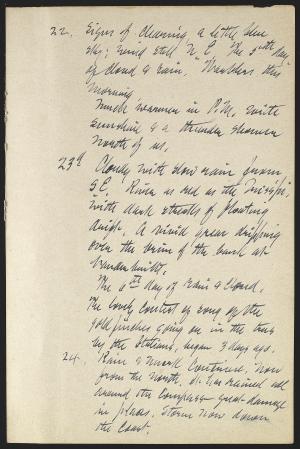 22. Signs of clearing, a little blue
sky; wind still N.E. The 5th day
of cloud & rain. Warblers this
morning
Much warmer in P.M. with
sunshine & a thunder shower
North of us.
23d Cloudy with slow rain from
S.E. River as red as the Missipi,
with dark streaks of floating
drift. A vivid green dripping
over the brim of the bank at
Vanderbilts.
The 6th day of rain & cloud.
The lovely contest of song of the
goldfinches going on in the trees
by the Station, began 3 days ago.
24. Rain & murk Continue, now
from the North, it has rained all
around the Compass great damage
in places. Storm now down
the Coast.